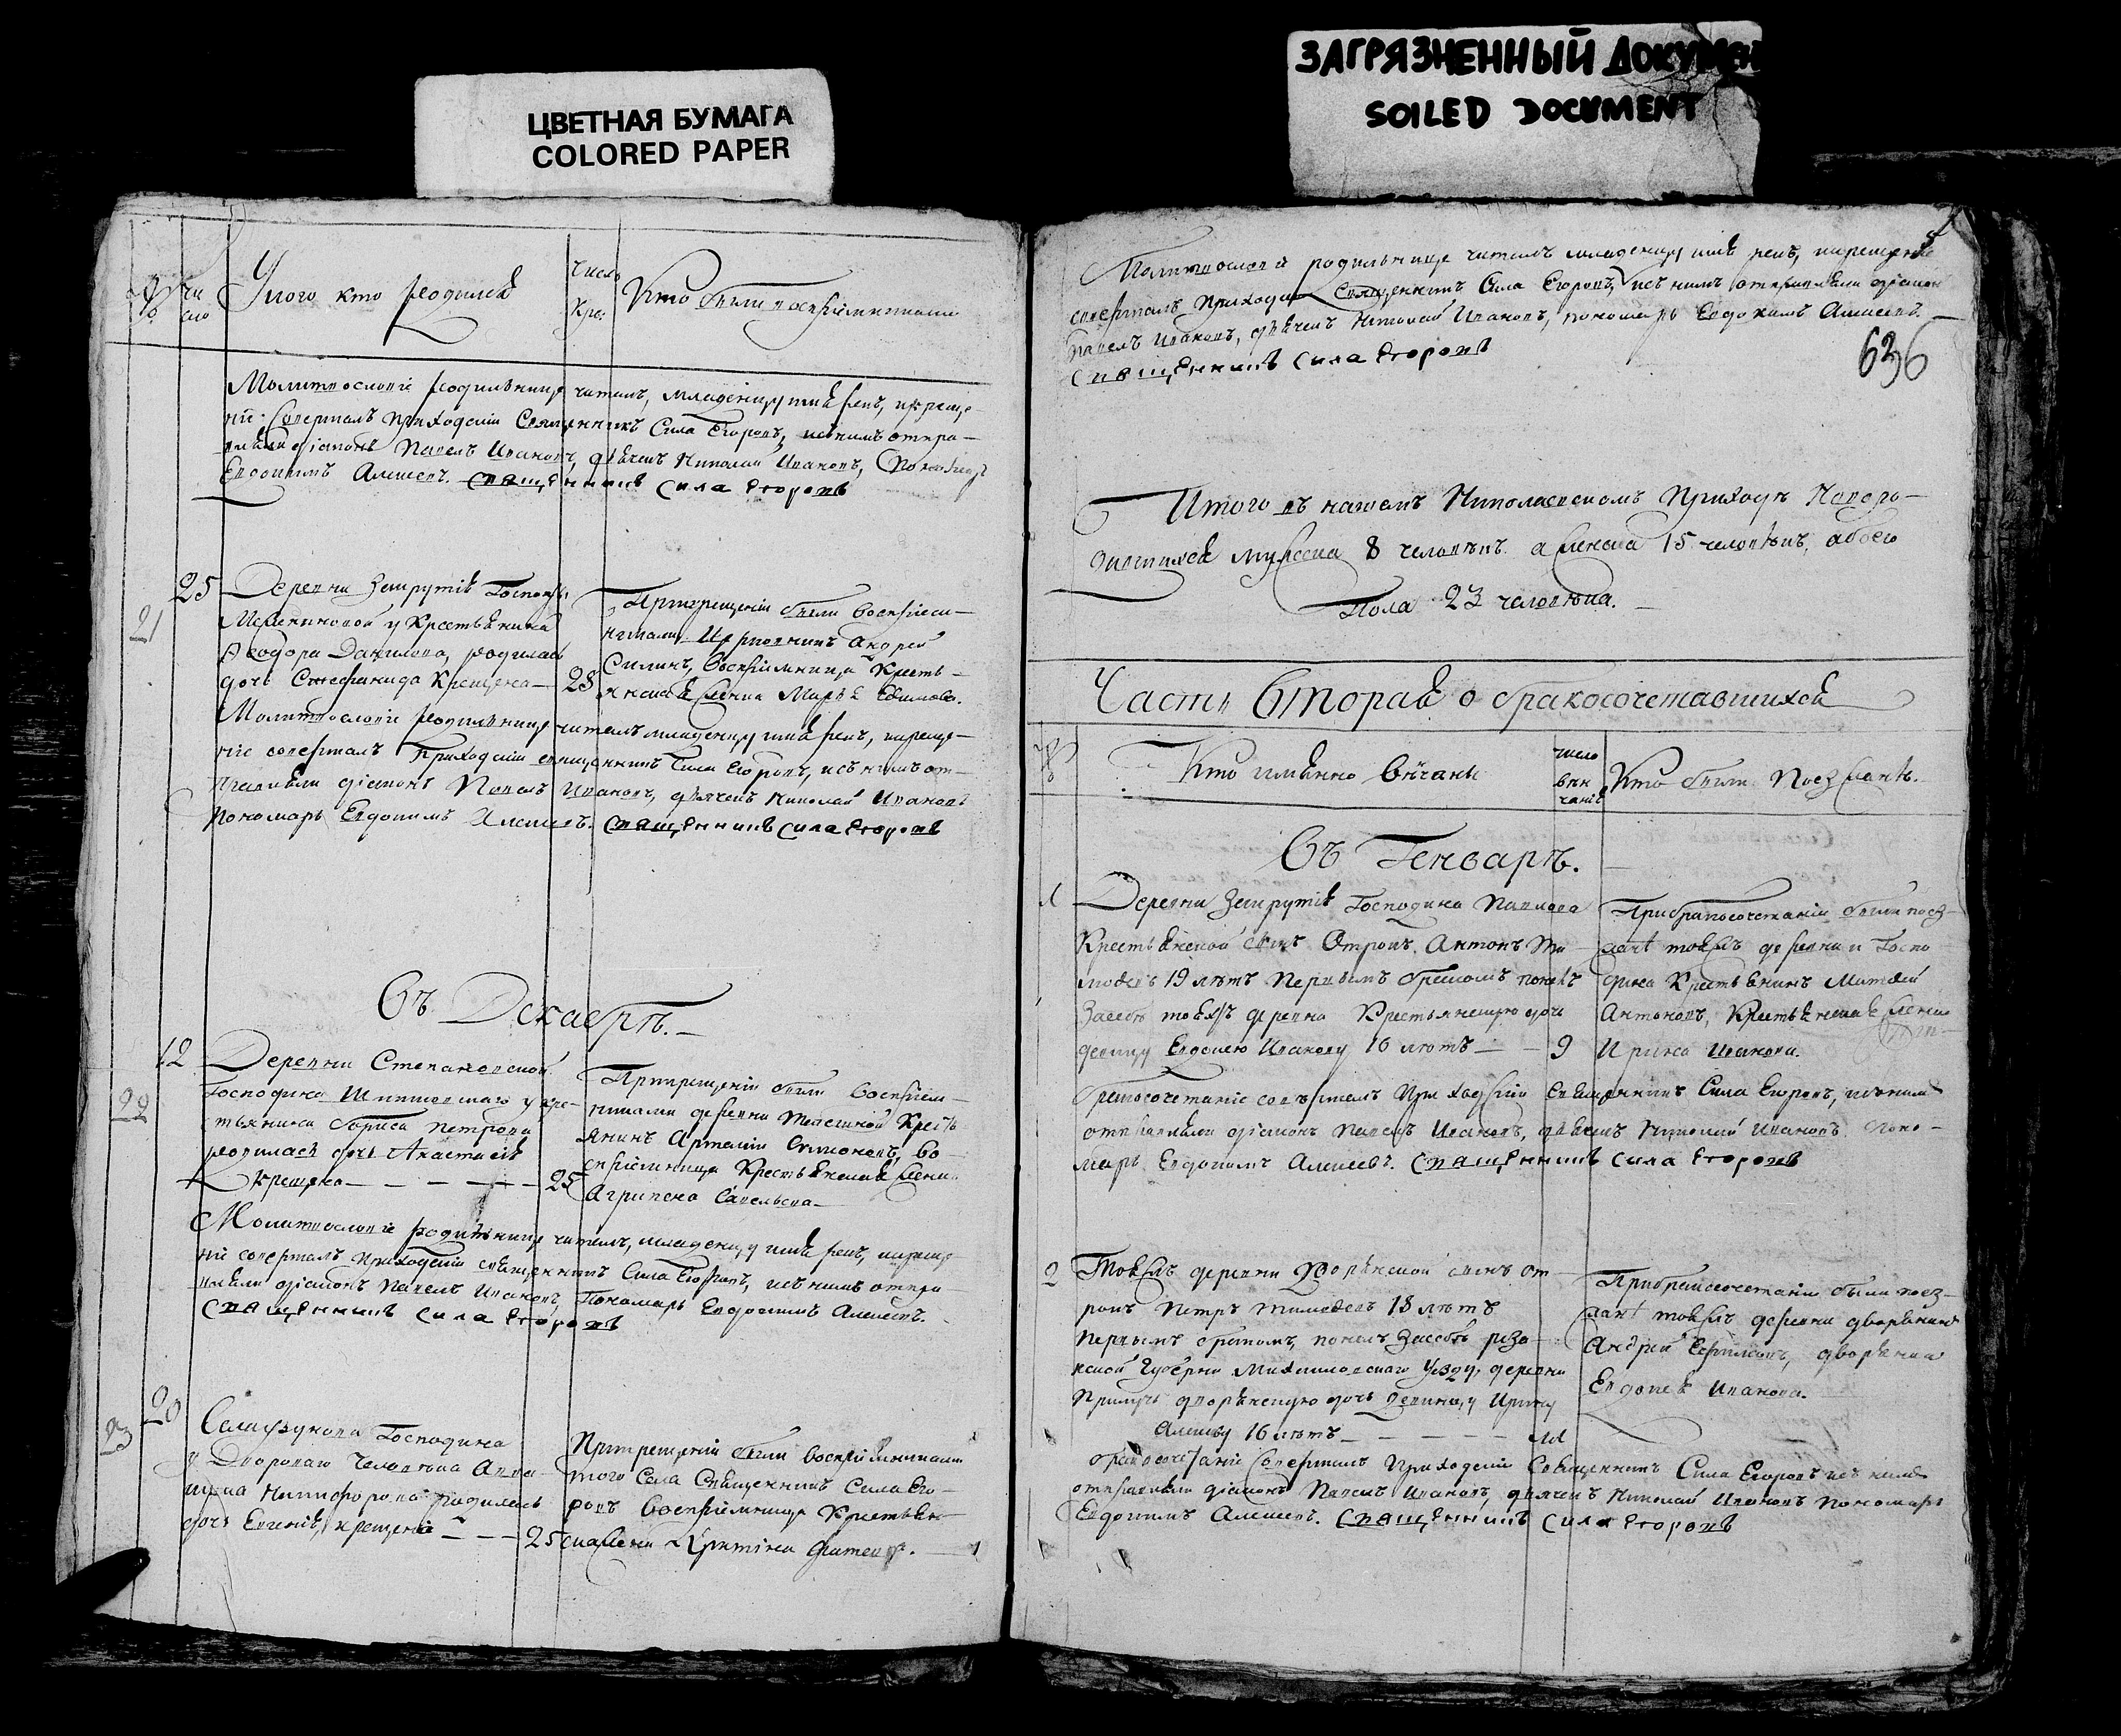 ЦВЕТНАЯ БУМАГА
COLORED PAPER
ЗАГРЯЗНЕННЫЙ ДОКУМЕН
SOILED DOCUMENT
чи
сло
У кого кто родился
Число
Кре:
Кто были восприемниками
Молитвословіе родильнице читалъ, младенцу имя рекъ, и креще
ніе совершалъ приходскій Священникъ Сила Егоровъ, и съ нимъ отпра-
вляли діаконъ Павелъ Ивановъ, дьячекъ Николай Ивановъ, Пономарь
Евдокимъ Алексеевъ. Священникъ Сила Егоровъ
21
25
Деревни Господжи
у Крестьянина
Ѳеодора Данилова, родилась
дочь Стефанида Крещена — 28
При крещеніи были восприем-
никами Церковникъ Андрей
Силинъ, восприемница Кресть-
янская женка Марья
Молитвословіе родильнице читалъ младенцу имя рекъ, и креще-
ніе совершалъ Приходскій священникъ Сила Егоровъ, и съ нимъ от-
правляли діаконъ Павелъ Ивановъ, дьячекъ Николай Ивановъ
Пономарь Евдокимъ Алексеевъ. Священникъ Сила Егоровъ
Въ Декабрѣ.
22
12
Деревни Степановской
Господина у кре-
стьянина Бориса Петрова
родилась дочь Анастасія
Крещена — — — — — 25
При крещеніи были восприем-
никами деревни Кресть
янинъ Артемій Симоновъ, во-
сприемница Крестьянская женка
Агрипена Савельева —
Молитвословіе родильнице читалъ, младенцу имя рекъ, и креще-
ніе совершалъ приходскій священникъ Сила Егоровъ, и съ нимъ отпра
вляли діаконъ Павелъ Ивановъ, Пономарь Евдокимъ Алексеевъ.
Священникъ Сила Егоровъ
23
20
Села Господина
у Двороваго Человѣка
Никифорова родилась
дочь Евгенія, крещена — — — 25
При крещеніи были восприемниками
того Села Священникъ Сила Его-
ровъ восприемница Крестьян-
ска жена
Молитвословіе родильнице читалъ младенцу имя рекъ, и крещеніе
совершалъ Приходскій Священникъ Сила Егоровъ, и съ нимъ отправляли діаконъ
Павелъ Ивановъ, дьячекъ Николай Ивановъ, пономарь Евдокимъ Алексеевъ. —
Священникъ Сила Егоровъ
636
Итого въ нашемъ Николаевскомъ Приходѣ Новоро-
дившихся мужеска 8 человѣкъ а женска 15 человѣкъ, обоего
Пола 23 человѣка. —
Часть Вторая о бракосочетавшихся
Кто имянно вѣчаны
число
вѣн
чанія
Кто были Поезжанѣ.
Въ Генварѣ.
1
Деревни Господина Павлова
Крестьянской сынъ Отрокъ Антонъ Ти
моѳеевъ 19 лѣтъ Первымъ бракомъ понялъ
За себя той жъ деревни Крестьянскую дочь
девицу Евдокею Иванову 16 лѣтъ — — 9
При бракосочетаніи были поез-
жанѣ той жъ деревни и Госпо
дина Крестьянинъ Матвей
Антоновъ, Крестьянская женка
Ирина Иванова.
бракосочетаніе совершалъ Приходскій Священникъ Сила Егоровъ, и съ нимъ
отправляли діаконъ Павелъ Ивановъ, дьячекъ Николай Ивановъ. Поно-
марь Евдокимъ Алексеевъ. Священникъ Сила Егоровъ
2
Той жъ деревни Дворянской сынъ От
рокъ Петръ Тимоѳеевъ 18 лѣтъ
Первымъ бракомъ, понялъ За себя Реза-
нской Губерни Михайловскаго Уезду, деревни
дворянскую дочь девицу Ирину
Алексеву 16 лѣтъ — — — — —
При бракосочетаніи были поез-
жанѣ той жъ деревни дворянинъ
Андрей дворянка
Евдокея Иванова.
бракосочетаніе Совершалъ Приходскій Священникъ Сила Егоровъ и съ нимъ
отправляли діаконъ Павелъ Ивановъ, дьячекъ Николай Ивановъ Пономарь
Евдокимъ Алексеевъ. Священникъ Сила Егоровъ